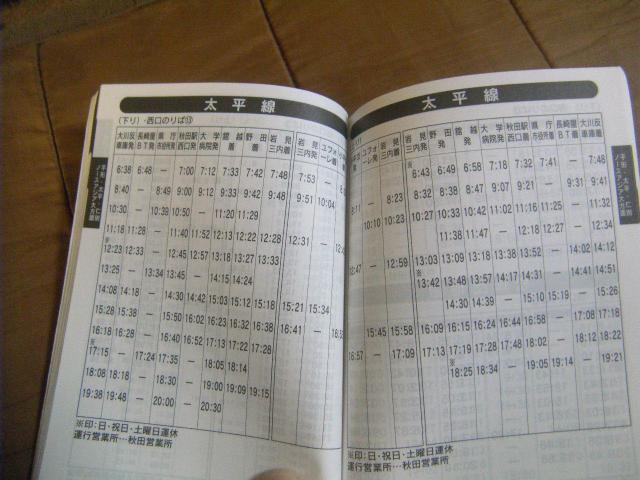 太平線
(下り)・西口のりば⑬
大川反車庫発 長崎屋BT発 県庁市役所発 秋田駅西口発 大学病院発 舘越発 野田着 岩見三内着 岩見三内発 ユフォーレ着
6:38 6:48 — 7:00 7:12 7:33 7:42 7:48 7:53 —
8:40 — 8:49 9:00 9:12 9:33 9:42 9:48 9:51 10:04
10:30 — 10:39 10:50 — 11:20 11:29
11:18 11:28 — 11:40 11:52 12:13 12:22 12:28 12:31 —
※12:23 12:33 — 12:45 12:57 13:18 13:27 13:33
13:25 — 13:34 13:45 — 14:15 14:24
14:08 14:18 — 14:30 14:42 15:03 15:12 15:18 15:21 15:34
15:28 15:38 — 15:50 16:02 16:23 16:32 16:38 16:41 —
16:18 16:28 — 16:40 16:52 17:13 17:22 17:28
※17:15 — 17:24 17:35 — 18:05 18:14
18:08 18:18 — — 19:00 19:09 19:15
19:38 19:48 — 20:00 — 20:30
※印:日・祝日・土曜日運休
運行営業所…秋田営業所
太平線
ユフォーレ発 岩見三内着 岩見三内発 野田発 舘越発 大学病院発 秋田駅西口着 県庁市役所着 長崎屋BT着 大川反車庫着
6:43 6:49 6:58 7:18 7:32 — 7:48
— 8:23 8:32 8:38 8:47 9:07 9:21 — 9:31 9:41
10:10 10:23 10:27 10:33 10:42 11:02 11:16 11:25 — 11:34
11:38 11:47 — 12:18 12:27 — 12:34
12:47 — 12:59 13:03 13:09 13:18 13:38 13:52 — 14:02 14:12
※13:42 13:48 13:57 14:17 14:31 — 14:41 14:51
14:30 14:39 — 15:10 15:19 — 15:26
15:45 15:58 16:09 16:15 16:24 16:44 16:58 — 17:08 17:18
16:57 — 17:09 17:13 17:19 17:28 17:48 18:02 — 18:12 18:22
※18:25 18:34 — 19:05 19:14 — 19:21
※印:日・祝日・土曜日運休
運行営業所…秋田営業所